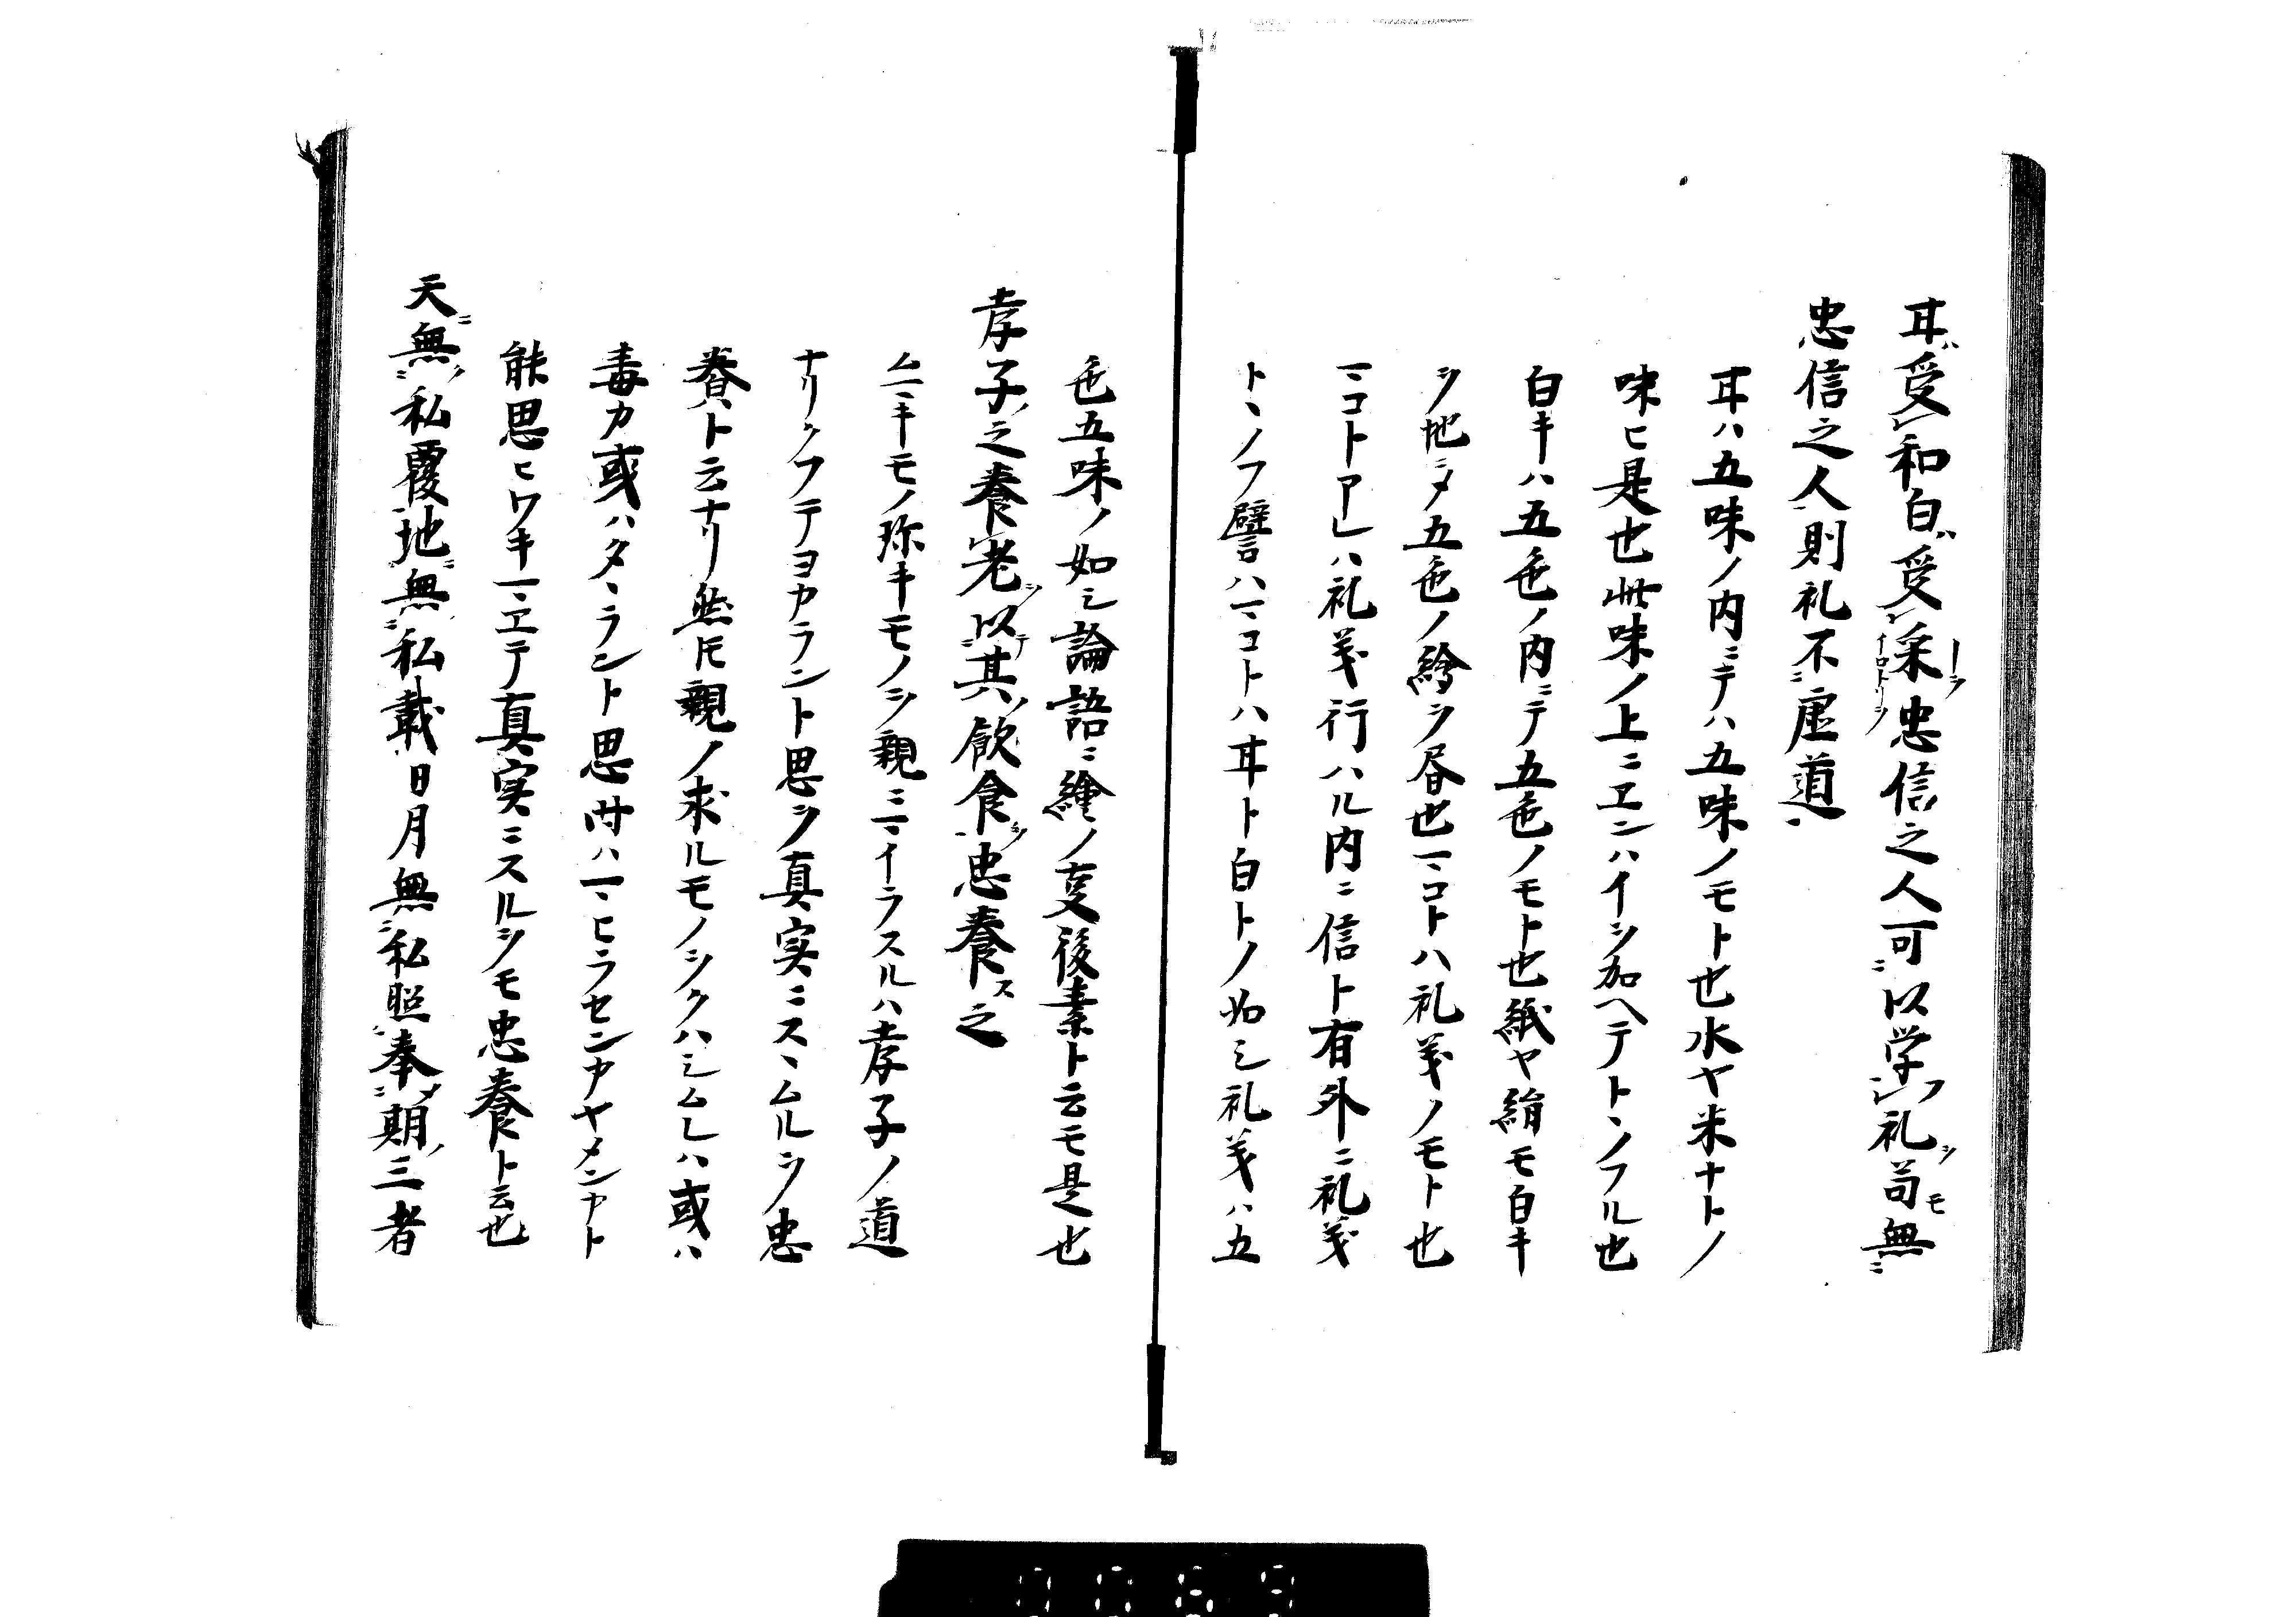 甘受和白受采忠信之人可以学礼苟無
忠信之人則礼不虚道
甘ハ五味ノ内ニテハ五味ノモト也水ヤ米ナトノ
味ヒ是也此味ノ上ニヱンハイヲ加ヘテトヽノフル也
白キハ五色ノ内ニテ五色ノモト也紙ヤ絹モ白キ
ヲ地ニメ五色ノ繪ヲ昼也マコトハ礼義ノモト也
マコトアレハ礼義行ハル内ニ信ト有外ニ礼義
トヽノフ譬ハマコトハ甘ト白トノ如シ礼義ハ五
色五味ノ如シ論語ニ繪ノ叓後素ト云モ是也
孝子之養老以其飲食忠養之
ムマキモノ珎キモノヲ親ニマイラスルハ孝子ノ道
ナリクフテヨカラント思ヲ真実ニスヽムルヲ忠
養ト云ナリ然𪜈親ノ求ルモノヲクハシムレハ或ハ
毒カ或ハタヽラント思時ハマヒラセンカヤメンカト
能思ヒワキマヱテ真実ニスルヲモ忠養ト云也
天無私覆地無私載日月無私照奉期三者